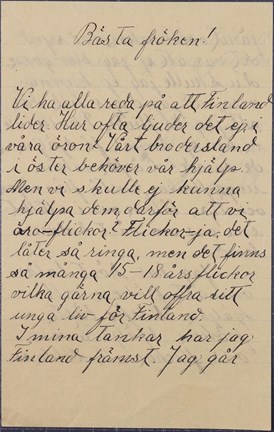 Bästa fröken!
Vi ha alla reda på att Finland
lider. Hur ofta ljuder det ej i
våra öron: Vårt brodersland
i öster behöver vår hjälp.
Men vi skulle ej kunna
hjälpa dem därför att vi
äro flickor? Flickor ja, det
låter så ringa, men det finns
så många 15-18 års flickor
vilka gärna vill offra sitt
unga liv för Finland.
I mina tankar har jag
Finland främst. Jag går